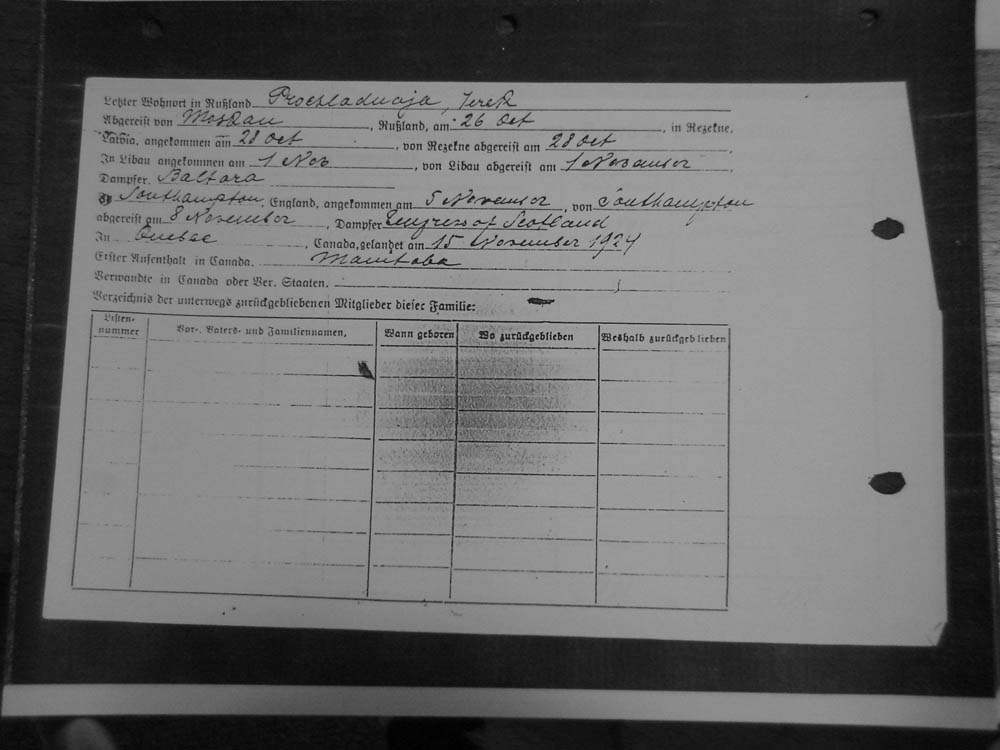 Letzter Wohnort in Rußland Prochladnaja, Terek
Abgereist von Moskau, Rußland, am 26 Oct, in Rezekne,
Latvia, angekommen am 28 Oct, von Rezekne abgereist am 28 Oct,
In Libau angekommen am 1 Nov, von Libau abgereist am 1 November,
Dampfer, Baltara
In Southampton, England, angekommen am 5 November, von Southampton
abgereist am 8 November, Dampfer Empress of Scotland
In Quebec, Canada, gelandet am 15 November 1924
Erster Aufenthalt in Canada, Manitoba
Verwandte in Canada oder Ver. Staaten.
Verzeichnis der unterwegs zurückgebliebenen Mitglieder dieser Familie: —
Listen-nummer Vor-, Vaters- und Familiennamen, Wann geboren Wo zurückgeblieben Weshalb zurückgeblieben